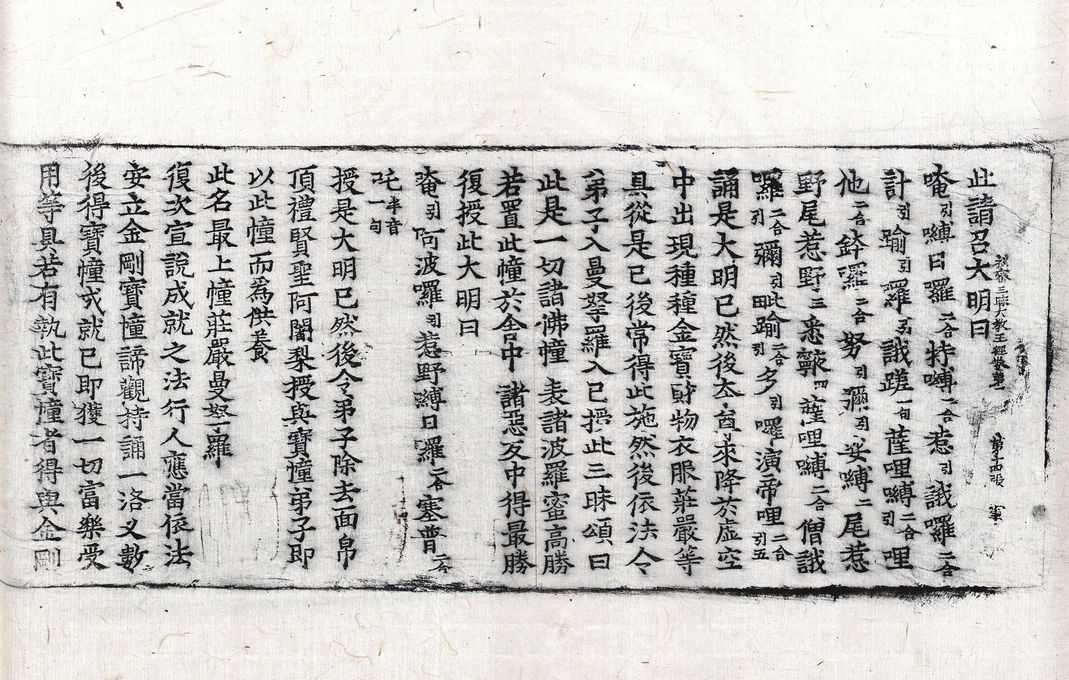 此請召大明曰
秘密三昧大教王經卷第 第十四張 軍
唵引嚩日羅二合特嚩二合惹引誐羅二合
計引瑜引羅引誐蹉一句薩哩嚩引二合哩
他二合鉢囉二合努引瓈引娑嚩二尾惹
野尾惹野三悉 四薩哩嚩二合僧誐
囉二合引彌引此瑜二合引多引囉演帝哩二合引五
誦是大明已然後 求降於虛空
中出現種種金寶財物衣服莊嚴等
具從是已後常得此施然後依法令
弟子入曼拏羅入已授此三昧頌曰
此是一切諸佛幢 表諸波羅蜜高勝
若置此幢於舍中 諸惡友中得最勝
復授此大明曰
唵引阿波囉引惹野嚩日羅二合塞普二合
吒半音一句
授是大明已然後令弟子除去面帛
頂禮賢聖阿闍梨授與寶幢弟子即
以此幢而為供養
此名最上幢莊嚴曼拏羅
復次宣說成就之法行人應當依法
安立金剛寶幢諦觀持誦一洛叉數
後得寶幢成就已即獲一切富樂受
用等具若有執此寶幢者得與金剛